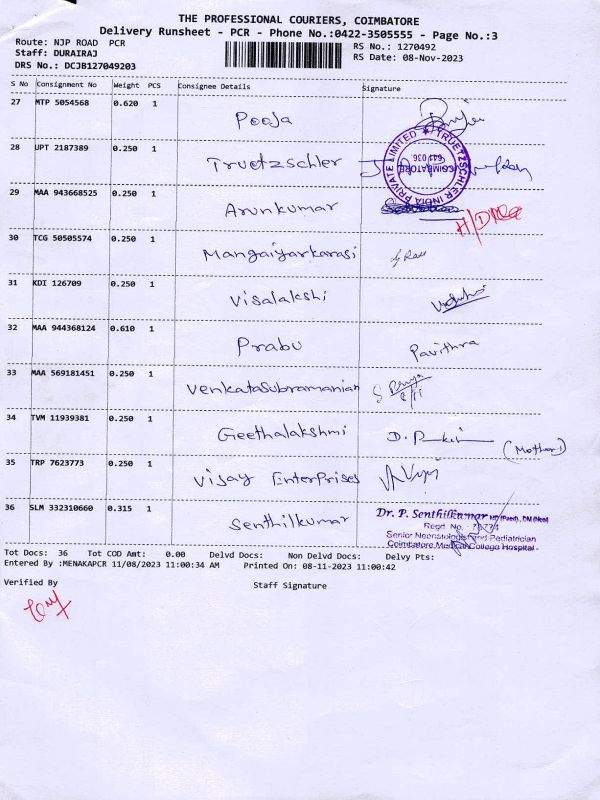 THE PROFESSIONAL COURIERS, COIMBATORE
Delivery Runsheet - PCR - Phone No.:0422-3505555 - Page No.:3
Route: NJP ROAD PCR
RS No.: 1270492
Staff: DURAIRAJ
RS Date: 08-Nov-2023
DRS No.: DCJB127049203
S No Consignment No Weight PCS Consignee Details Signature
27 MTP 5054568 0.620 1 Pooja
28 UPT 2187389 0.250 1 Truetzschler
TRUETZSCHLER INDIA PRIVATE LIMITED
COIMBATORE
641 036
29 MAA 943668525 0.250 1 Arunkumar
30 TCG 50505574 0.250 1 Mangaiyarkarasi
31 KDI 126709 0.250 1 Visalakshi
32 MAA 944368124 0.610 1 Prabu Pavithra
33 MAA 569181451 0.250 1 VenkataSubramanian S Priya 8/11
34 TVM 11939381 0.250 1 Geethalakshmi D. (Mother)
35 TRP 7623773 0.250 1 Vijay Enterprises
36 SLM 332310660 0.315 1 Senthilkumar
Dr. P. Senthilkumar MD (Paed), DM (Neo)
Regd. No. -
Senior Neonatologist and Pediatrician
Coimbatore Medical College Hospital
Tot Docs: 36 Tot COD Amt: 0.00 Delvd Docs: Non Delvd Docs: Delvy Pts:
Entered By :MENAKAPCR 11/08/2023 11:00:34 AM Printed On: 08-11-2023 11:00:42
Verified By
Staff Signature